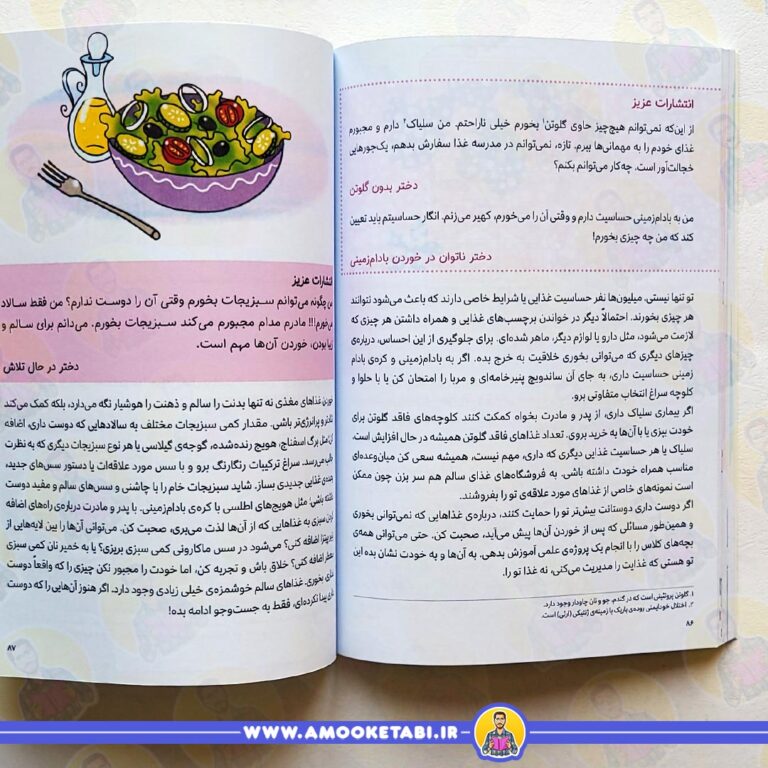 انتشارات عزیز
از این‌که نمی‌توانم هیچ‌چیز حاوی گلوتن۱ بخورم خیلی ناراحتم. من سلیاک۲ دارم و مجبورم
غذای خودم را به مهمانی‌ها ببرم. تازه، نمی‌توانم در مدرسه غذا سفارش بدهم، یک‌جورهایی
خجالت‌آور است. چه‌کار می‌توانم بکنم؟
دختر بدون گلوتن
من به بادام‌زمینی حساسیت دارم و وقتی آن را می‌خورم، کهیر می‌زنم. انگار حساسیتم باید تعیین
کند که من چه چیزی بخورم!
دختر ناتوان در خوردن بادام‌زمینی
تو تنها نیستی. میلیون‌ها نفر حساسیت غذایی یا شرایط خاصی دارند که باعث می‌شود نتوانند
هر چیزی بخورند. احتمالاً دیگر در خواندن برچسب‌های غذایی و همراه داشتن هر چیزی که
لازمت می‌شود، مثل دارو یا لوازم دیگر، ماهر شده‌ای. برای جلوگیری از این احساس، درباره‌ی
چیزهای دیگری که می‌توانی بخوری خلاقیت به خرج بده. اگر به بادام‌زمینی و کره‌ی بادام
زمینی حساسیت داری، به جای آن ساندویچ پنیرخامه‌ای و مربا را امتحان کن یا با حلوا و
کلوچه سراغ انتخاب متفاوتی برو.
اگر بیماری سلیاک داری، از پدر و مادرت بخواه کمکت کنند کلوچه‌های فاقد گلوتن برای
خودت بپزی یا با آن‌ها به خرید بروی. تعداد غذاهای فاقد گلوتن همیشه در حال افزایش است.
سلیاک یا هر حساسیت غذایی دیگری که داری، مهم نیست، همیشه سعی کن میان‌وعده‌ای
مناسب همراه خودت داشته باشی. به فروشگاه‌های غذای سالم هم سر بزن چون ممکن
است نمونه‌های خاصی از غذاهای مورد علاقه‌ی تو را بفروشند.
اگر دوست داری دوستانت بیش‌تر تو را حمایت کنند، درباره‌ی غذاهایی که نمی‌توانی بخوری
و همین‌طور مسائلی که پس از خوردن آن‌ها پیش می‌آید، صحبت کن. حتی می‌توانی همه‌ی
بچه‌های کلاس را با انجام یک پروژه‌ی علمی آموزش بدهی. به آن‌ها و به خودت نشان بده این
تو هستی که غذایت را مدیریت می‌کنی، نه غذا تو را.
۱. گلوتن پروتئینی است که در گندم، جو و نان چاودار وجود دارد.
۲. اختلال خودایمنی روده‌ی باریک با زمینه‌ی ژنتیکی (ارثی) است.
۸۶
انتشارات عزیز
من چگونه می‌توانم سبزیجات بخورم وقتی آن را دوست ندارم؟ من فقط سالاد
می‌خورم!!! مادرم مدام مجبورم می‌کند سبزیجات بخورم. می‌دانم برای سالم و
زیبا بودن، خوردن آن‌ها مهم است.
دختر در حال تلاش
خوردن غذاهای مغذی نه تنها بدنت را سالم و ذهنت را هوشیار نگه می‌دارد، بلکه کمک می‌کند
و پرانرژی‌تر باشی. مقدار کمی سبزیجات مختلف به سالادهایی که دوست داری، اضافه
مثل برگ اسفناج، هویج رنده‌شده، گوجه‌ی گیلاسی یا هر نوع سبزیجات دیگری که به نظرت
می‌رسد. سراغ ترکیبات رنگارنگ برو و با سس مورد علاقه‌ات یا دستور سس‌های جدید،
غذایی جدیدی بساز. شاید سبزیجات خام را با چاشنی و سس‌های سالم و مفید دوست
داشته باشی؛ مثل هویج‌های اطلسی با کره‌ی بادام‌زمینی. با پدر و مادرت درباره‌ی راه‌های اضافه
کردن سبزی به غذاهایی که از آن‌ها لذت می‌بری، صحبت کن. می‌توانی آن‌ها را بین لایه‌هایی از
پیتزا اضافه کنی؟ می‌شود در سس ماکارونی کمی سبزی بریزی؟ یا به خمیر نان کمی سبزی
معطر اضافه کنی؟ خلاق باش و تجربه کن، اما خودت را مجبور نکن چیزی را که واقعاً دوست
نداری بخوری. غذاهای سالم خوشمزه‌ی خیلی زیادی وجود دارد. اگر هنوز آن‌هایی را که دوست
داری پیدا نکرده‌ای، فقط به جست‌وجو ادامه بده!
۸۷
WWW.AMOOKETABI.IR